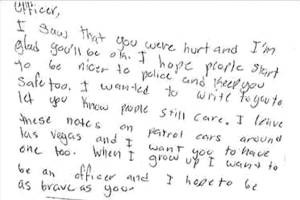 Officer,
I saw that you were hurt and I'm
glad you'll be ok. I hope people start
to be nicer to police and keep you
safe too. I wanted to write to you to
let you know people still care. I leave
these notes on patrol cars around
las vegas and I want you to have
one too. When I grow up I want to
be an officer and I hope to be
as brave as you.